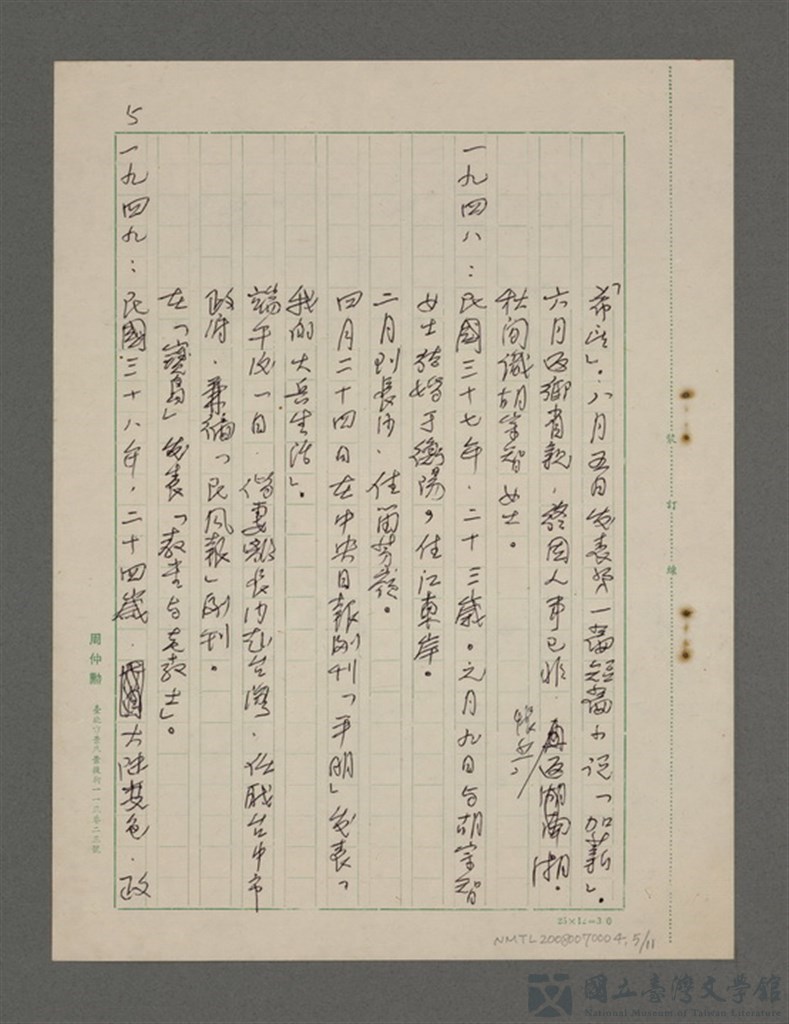 5
「希望」．八月五日發表第一篇短篇小說「加薪」。
六月返鄉省親．發因人事已非．再返湖南湘．
恨無
秋間識胡家智女士。
一九四八：民國三十七年．二十三歲。元月九日與胡家智
女士結婚于衡陽，住江東岸。
二月到長沙．住留芳嶺。
四月二十四日在中央日報副刊「平明」發表「
我的大兵生活」。
端午後一日．偕妻離長沙赴台灣．任職台中市
政府．兼編「民風報」副刊。
在「寶島」發表「教書與老教士」。
一九四九：民國三十八年．二十四歲．大陸變色．政
裝訂線
周仲勳
25×12=30
NMTL20080070004, 5/11
國立臺灣文學館
National Museum of Taiwan Literature